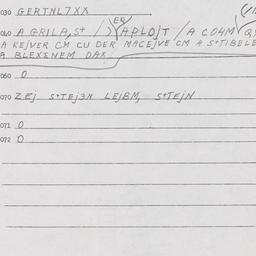 030 GERTNL7XX
040 A GRILA, S+ / APLOJT / A CO4M
A KEJVER CM CU DER MACEJVE CM A S+IBELE
A BLEXENEM DAX,
060 0
070 ZEJ S+TEJ3N LEJBM, S+TEJN
071 0
072 0